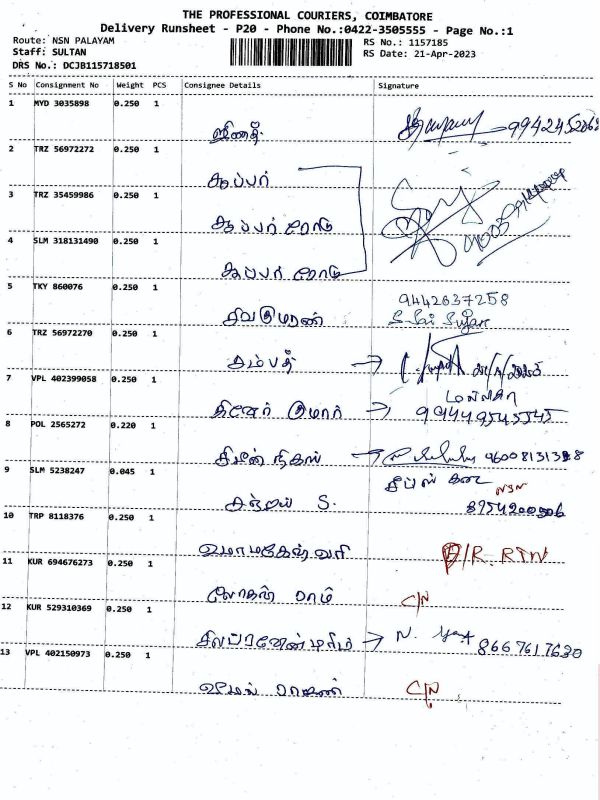 THE PROFESSIONAL COURIERS, COIMBATORE
Delivery Runsheet - P20 - Phone No.:0422-3505555 - Page No.:1
Route: NSN PALAYAM
RS No.: 1157185
Staff: SULTAN
RS Date: 21-Apr-2023
DRS No.: DCJB115718501
S No Consignment No Weight PCS Consignee Details Signature
1 MYD 3035898 0.250 1
9942452068
2 TRZ 56972272 0.250 1
சூப்பர்
3 TRZ 35459986 0.250 1
சூப்பர் ரோடு
4 SLM 318131490 0.250 1
சூப்பர் ரோடு
5 TKY 860076 0.250 1
9442637258
சிவகுமரன்
S. Sai Sujan
6 TRZ 56972270 0.250 1
சம்பத் → 21/4/2023
7 VPL 402399058 0.250 1
தினேர் குமார் →
8 POL 2565272 0.220 1
→ 9600813138
9 SLM 5238247 0.045 1
சிப்ஸ் கடை
S. 8954200506
10 TRP 8118376 0.250 1
உமாமகேஸ்வரி
D/R. RTN
11 KUR 694676273 0.250 1
லோகன் ராம்
C/N
12 KUR 529310369 0.250 1
→ N. 8667617630
13 VPL 402150973 0.250 1
C/N